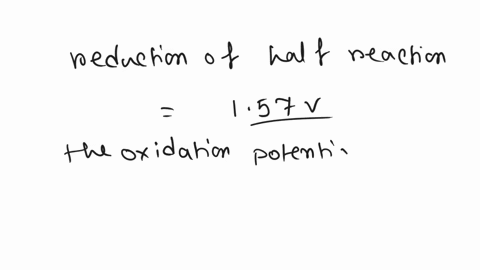 reduction of half reaction
= 1.57 V
the oxidation potenti